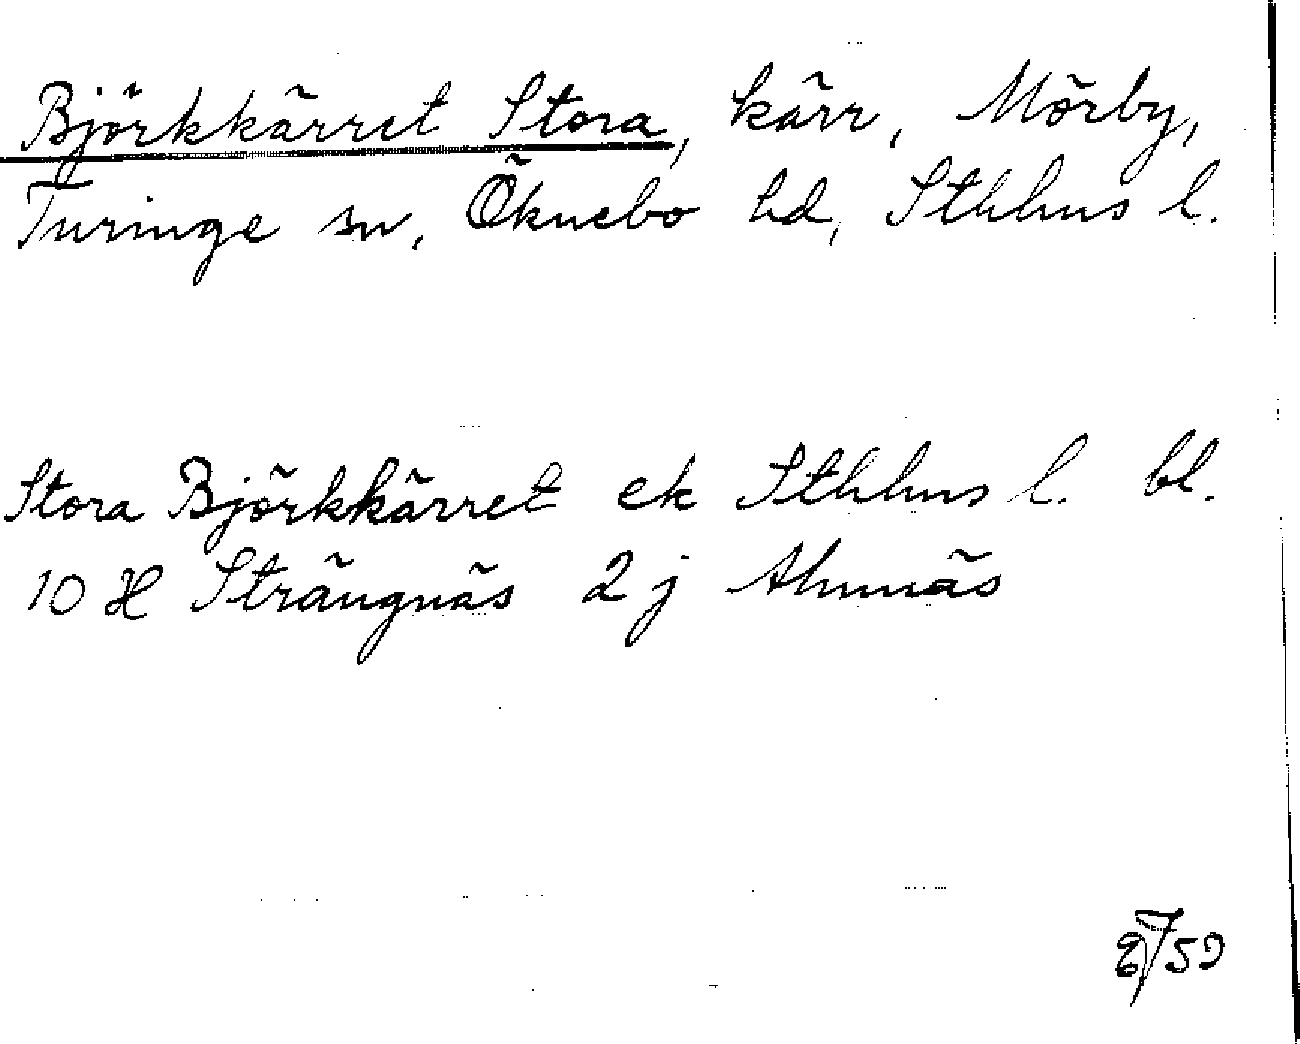 Björkkärret Stora, kärr, Mörby,
Turinge sn, Öknebo hd, Sthlms l.
Stora Björkkärret ek Sthlms l. bl.
10 H Strängnäs 2 j Almnäs
59